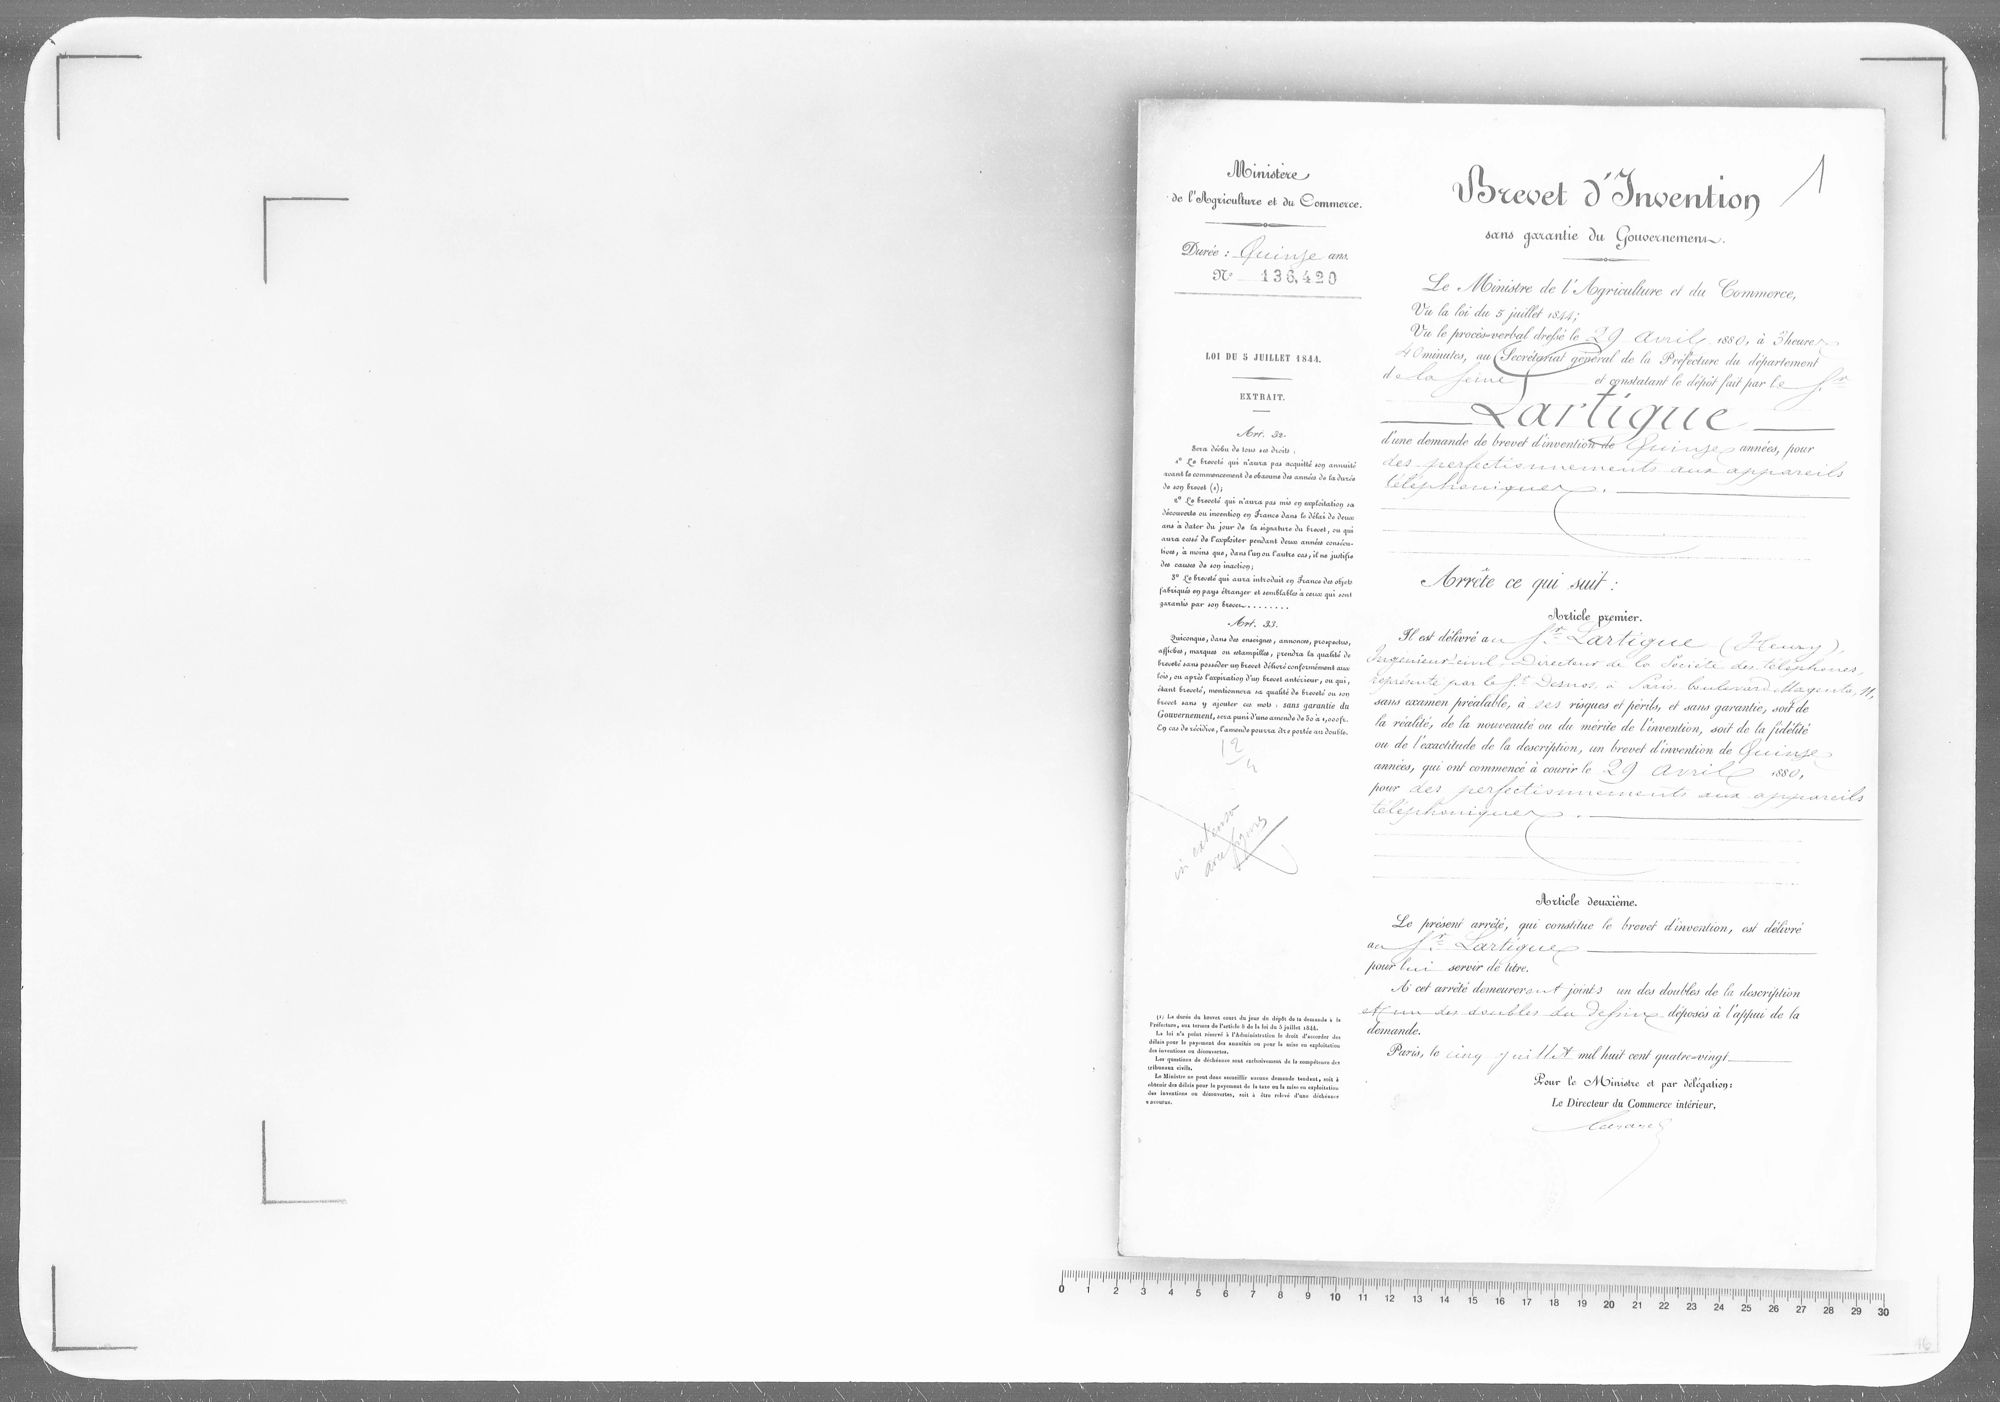 Ministère
de l'Agriculture et du Commerce.
Durée : Quinze ans.
N° 136,420
LOI DU 5 JUILLET 1844.
EXTRAIT.
Art. 32.
Sera déchu de tous ses droits :
1° Le breveté qui n'aura pas acquitté son annuité
avant le commencement de chacune des années de la durée
de son brevet (1);
2° Le breveté qui n'aura pas mis en exploitation sa
découverte ou invention en France dans le délai de deux
ans à dater du jour de la signature du brevet, ou qui
aura cessé de l'exploiter pendant deux années consécu-
tives, à moins que, dans l'un ou l'autre cas, il ne justifie
des causes de son inaction;
3° Le breveté qui aura introduit en France des objets
fabriqués en pays étranger et semblables à ceux qui sont
garantis par son brevet........
Art. 33.
Quiconque, dans des enseignes, annonces, prospectus,
affiches, marques ou estampilles, prendra la qualité de
breveté sans posséder un brevet délivré conformément aux
lois, ou après l'expiration d'un brevet antérieur, ou qui,
étant breveté, mentionnera sa qualité de breveté ou son
brevet sans y ajouter ces mots : sans garantie du
Gouvernement, sera puni d'une amende de 50 à 1,000 fr.
En cas de récidive, l'amende pourra être portée au double.
12/4
in extenso
avec figures
(1) La durée du brevet court du jour du dépôt de la demande à la
Préfecture, aux termes de l'article 8 de la loi du 5 juillet 1844.
La loi n'a point réservé à l'Administration le droit d'accorder des
délais pour le payement des annuités ou pour la mise en exploitation
des inventions ou découvertes.
Les questions de déchéance sont exclusivement de la compétence des
tribunaux civils.
Le Ministre ne peut donc accueillir aucune demande tendant, soit à
obtenir des délais pour le payement de la taxe ou la mise en exploitation
des inventions ou découvertes, soit à être relevé d'une déchéance
encourue.
1
Brevet d'Invention
sans garantie du Gouvernement.
Le Ministre de l'Agriculture et du Commerce,
Vu la loi du 5 juillet 1844;
Vu le procès-verbal dressé le 29 avril 1880, à 3 heures
40 minutes, au Secrétariat général de la Préfecture du département
de la Seine et constatant le dépôt fait par le Sr
Lartigue
d'une demande de brevet d'invention de Quinze années, pour
des perfectionnements aux appareils
téléphoniques.
Arrête ce qui suit :
Article premier.
Il est délivré au Sr Lartigue (Henry),
Ingénieur civil, Directeur de la Société des téléphones,
représenté par le Sr Desnos, à Paris boulevard Magenta, 11,
sans examen préalable, à ses risques et périls, et sans garantie, soit de
la réalité, de la nouveauté ou du mérite de l'invention, soit de la fidélité
ou de l'exactitude de la description, un brevet d'invention de Quinze
années, qui ont commencé à courir le 29 avril 1880,
pour des perfectionnements aux appareils
téléphoniques.
Article deuxième.
Le présent arrêté, qui constitue le brevet d'invention, est délivré
au Sr Lartigue
pour lui servir de titre.
A cet arrêté demeureront joints un des doubles de la description
et un des doubles du dessin déposés à l'appui de la
demande.
Paris, le cinq juillet mil huit cent quatre-vingt
Pour le Ministre et par délégation:
Le Directeur du Commerce intérieur,
0 1 2 3 4 5 6 7 8 9 10 11 12 13 14 15 16 17 18 19 20 21 22 23 24 25 26 27 28 29 30
16